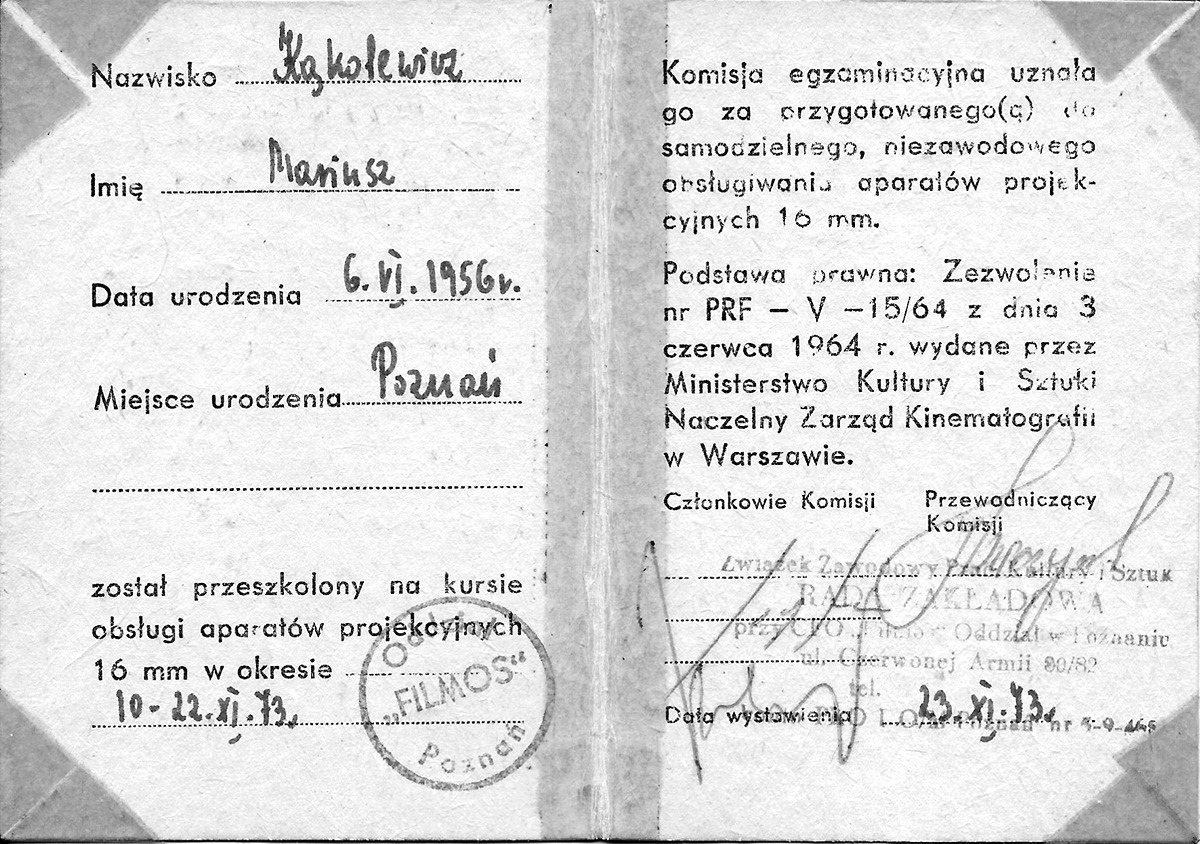 Nazwisko Kąkolewicz
Imię Mariusz
Data urodzenia 6.VI.1956r.
Miejsce urodzenia Poznań
został przeszkolony na kursie
obsługi aparatów projekcyjnych
16 mm w okresie
10-22.XI.73.
Oddział
„FILMOS”
Poznań
Komisja egzaminacyjna uznała
go za przygotowanego(ą) do
samodzielnego, niezawodowego
obsługiwania aparatów projek-
cyjnych 16 mm.
Podstawa prawna: Zezwolenie
nr PRF – V –15/64 z dnia 3
czerwca 1964 r. wydane przez
Ministerstwo Kultury i Sztuki
Naczelny Zarząd Kinematografii
w Warszawie.
Członkowie Komisji Przewodniczący
Komisji
Związek Zawodowy Prac. Kultury i Sztuk
RADA ZAKŁADOWA
przy Oddział w Poznaniu
ul. Czerwonej Armii 80/82
tel.
Data wystawienia 23.XI.73.
Poznań nr